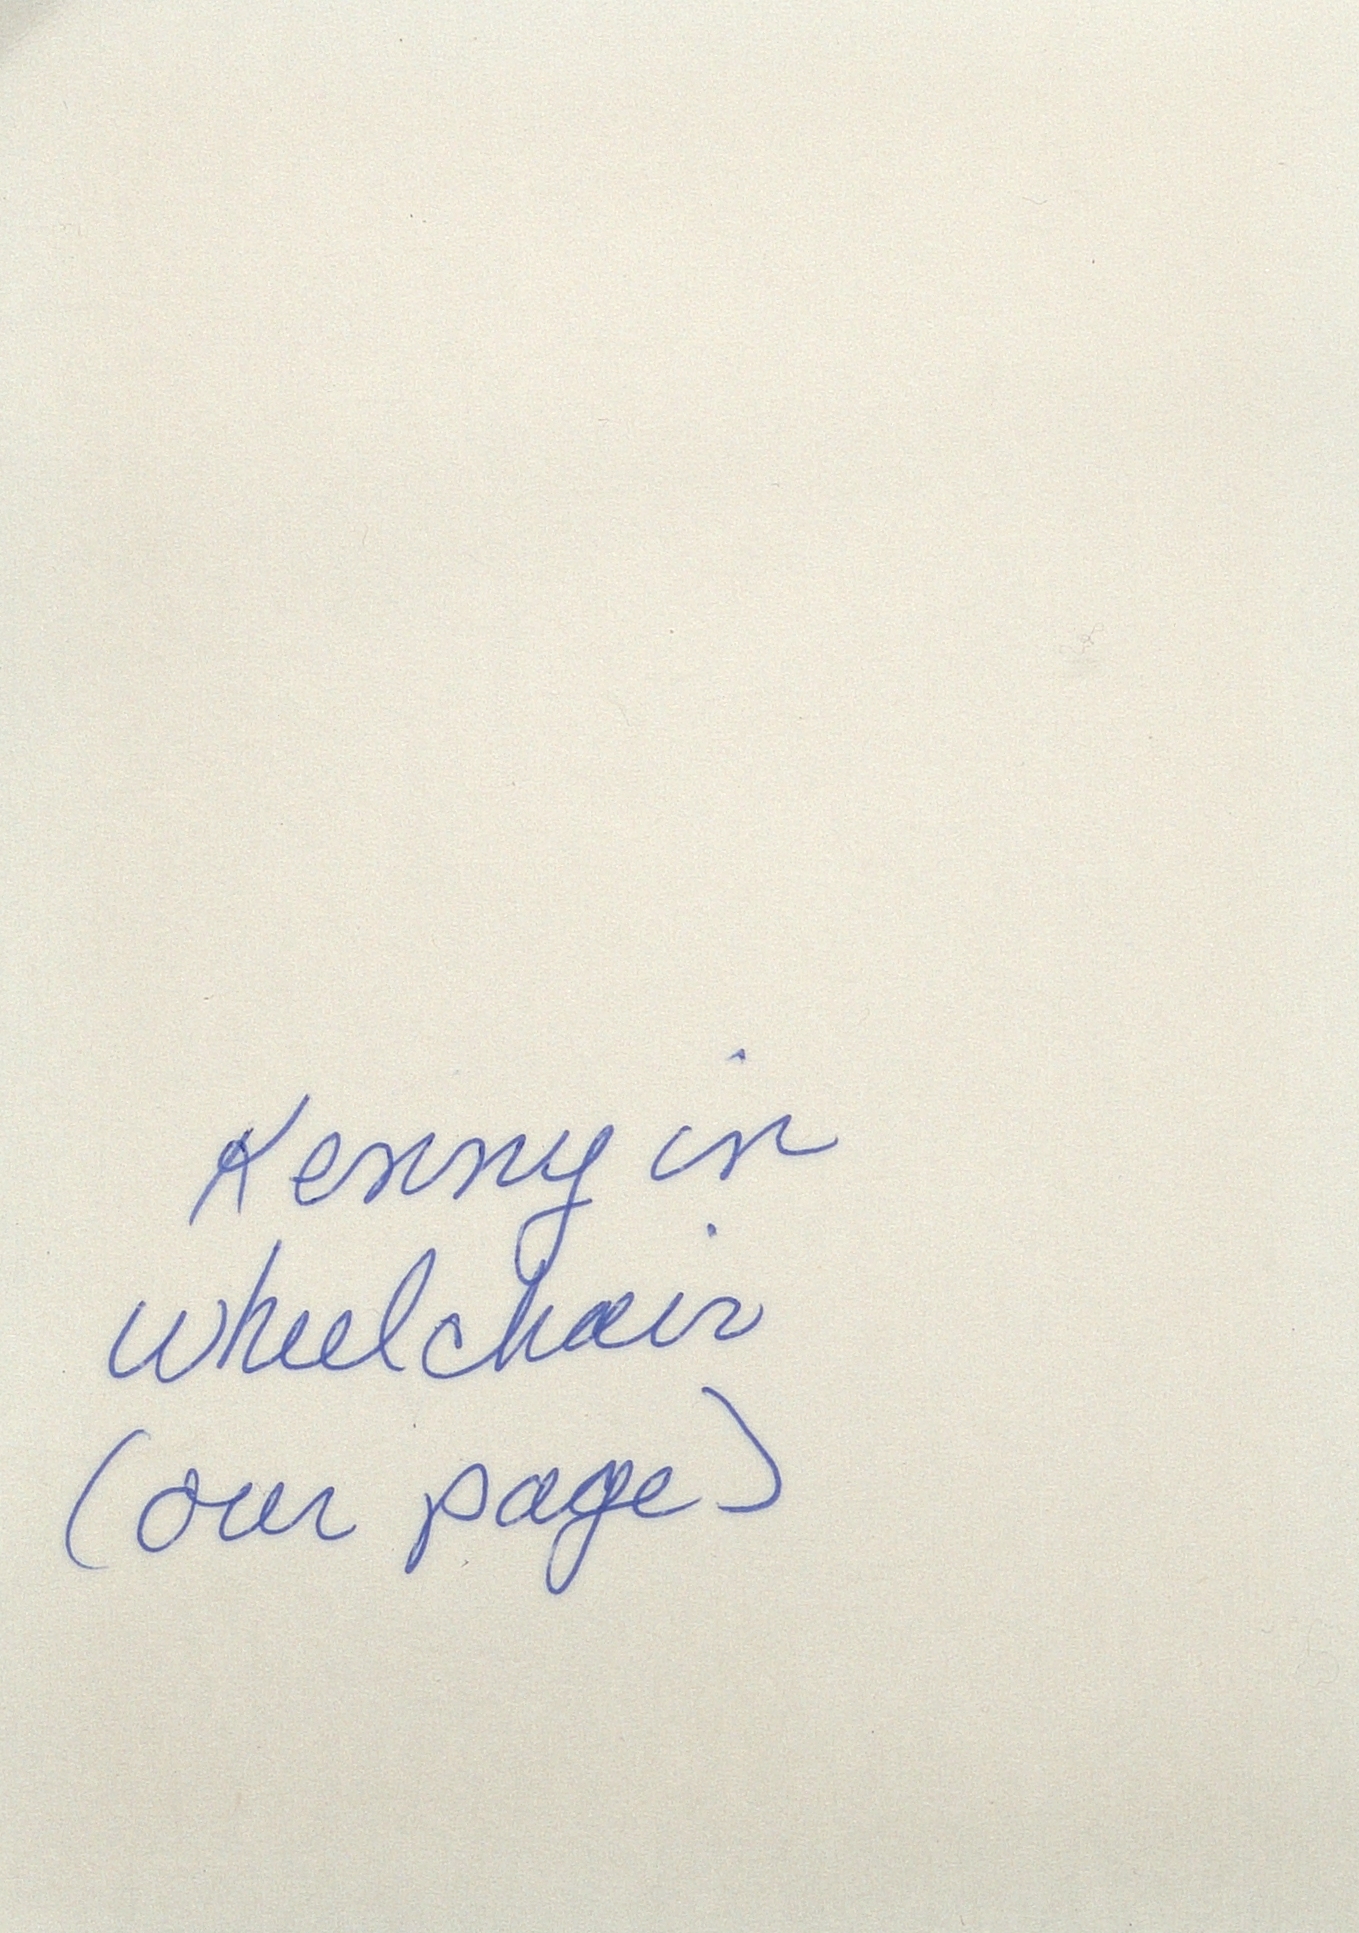 Kenny in
wheelchair
(our page)